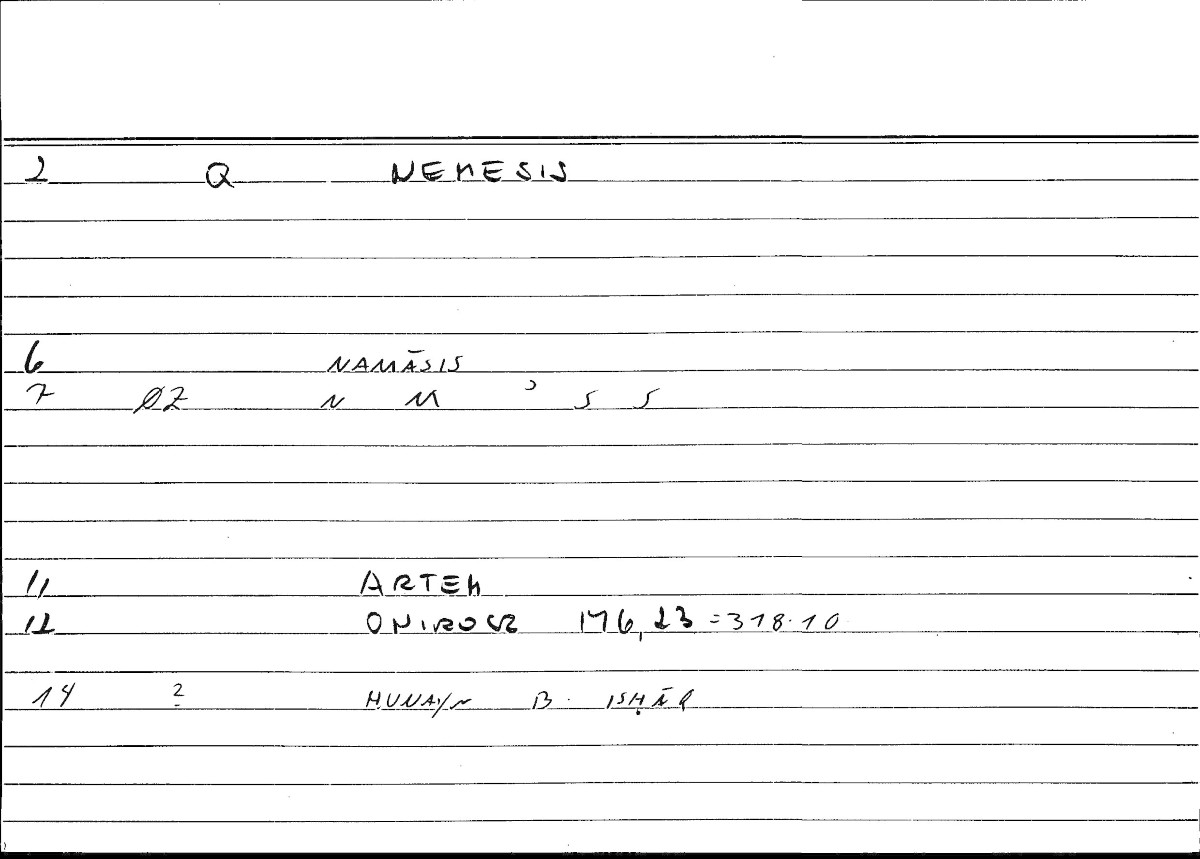 2 Q NEMESIS
6 NAMĀSIS
7 ØZ N M ʾ S S
11 ARTEM
12 ONIROCR 176,23 = 318.10
14 ? ḤUNAYN B. ISḤĀQ